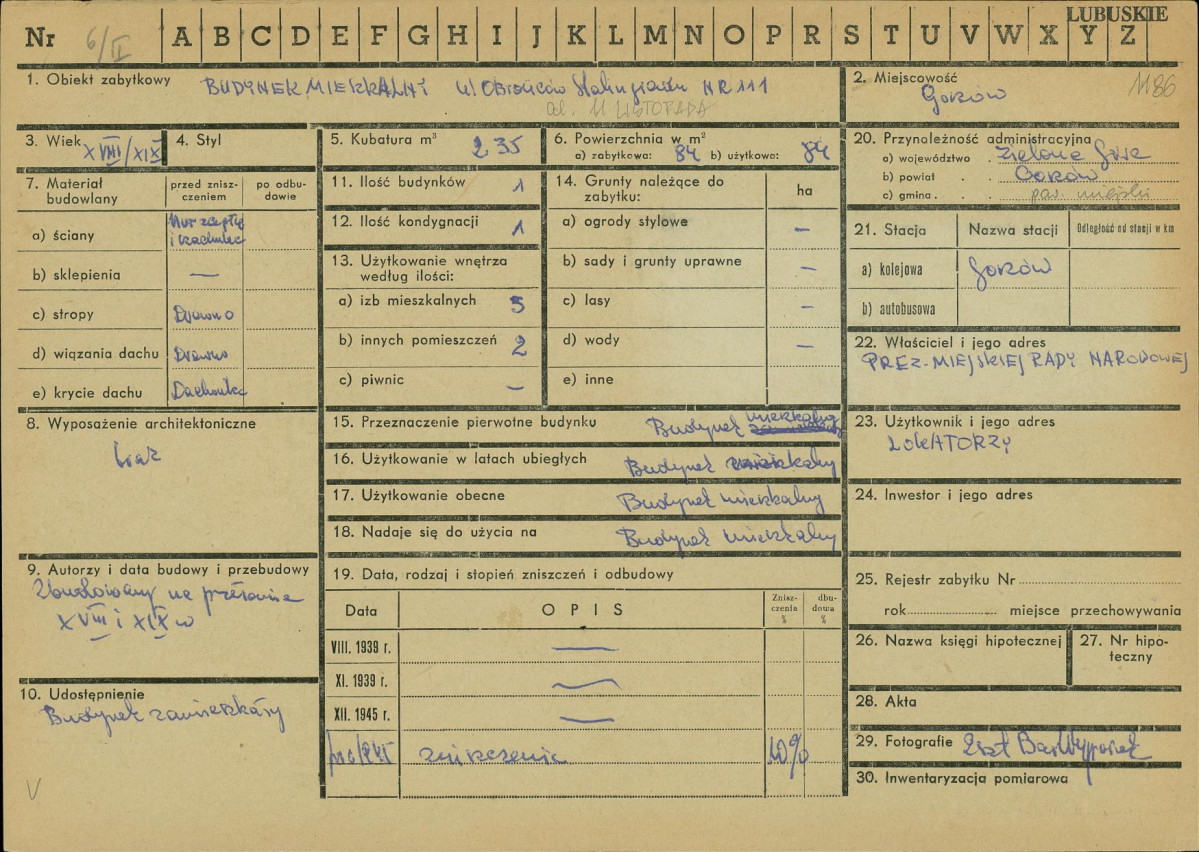 LUBUSKIE
Nr 6/II A B C D E F G H I J K L M N O P R S T U V W X Y Z
1. Obiekt zabytkowy BUDYNEK MIESZKALNY ul Obrońców Stalingradu NR 111
ul. 11 LISTOPADA
2. Miejscowość 1186
Gorzów
3. Wiek XVIII/XIX
4. Styl
5. Kubatura m³ 235
6. Powierzchnia w m²
a) zabytkowa: 84 b) użytkowa: 84
7. Materiał budowlany
przed zniszczeniem
po odbudowie
a) ściany
b) sklepienia —
c) stropy Drewno
d) wiązania dachu Drewno
e) krycie dachu Dachówka
8. Wyposażenie architektoniczne
brak
9. Autorzy i data budowy i przebudowy
Zbudowany na przełomie
XVIII i XIX w
10. Udostępnienie
Budynek zamieszkały
V
11. Ilość budynków 1
12. Ilość kondygnacji 1
13. Użytkowanie wnętrza
według ilości:
a) izb mieszkalnych 5
b) innych pomieszczeń 2
c) piwnic —
14. Grunty należące do
zabytku: ha
a) ogrody stylowe —
b) sady i grunty uprawne —
c) lasy —
d) wody —
e) inne
15. Przeznaczenie pierwotne budynku Budynek mieszkalny
16. Użytkowanie w latach ubiegłych Budynek mieszkalny
17. Użytkowanie obecne Budynek mieszkalny
18. Nadaje się do użycia na Budynek mieszkalny
19. Data, rodzaj i stopień zniszczeń i odbudowy
Data OPIS Zniszczenia % dbudowa %
VIII. 1939 r. —
XI. 1939 r. —
XII. 1945 r. —
zniszczenie 10%
20. Przynależność administracyjna
a) województwo . Zielona Góra
b) powiat . . Gorzów
c) gmina . . . pow. miejski
21. Stacja Nazwa stacji Odległość od stacji w km
a) kolejowa Gorzów
b) autobusowa
22. Właściciel i jego adres
PREZ. MIEJSKIEJ RADY NARODOWEJ
23. Użytkownik i jego adres
LOKATORZY
24. Inwestor i jego adres
25. Rejestr zabytku Nr
rok miejsce przechowywania
26. Nazwa księgi hipotecznej
27. Nr hipoteczny
28. Akta
29. Fotografie
30. Inwentaryzacja pomiarowa